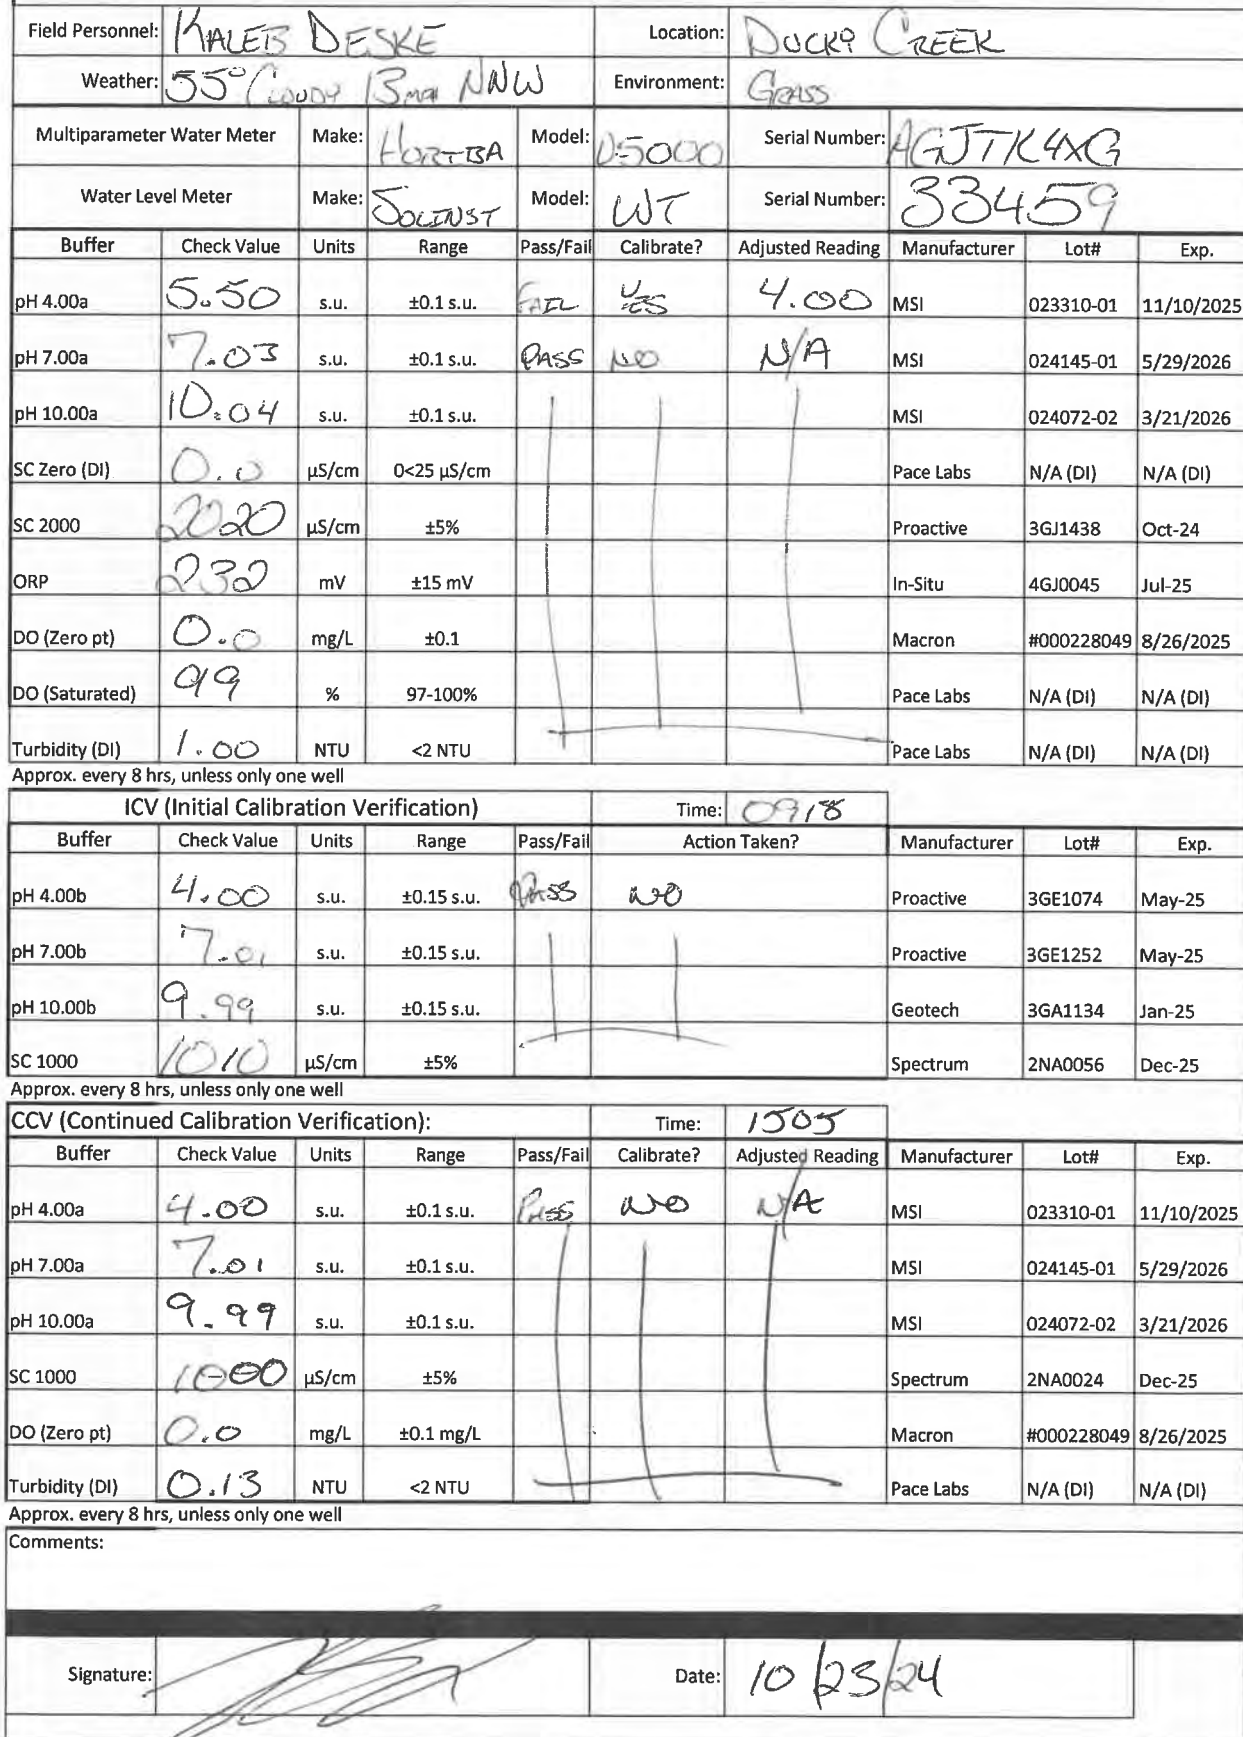 Field Personnel: KALEB DESKE Location: DUCK CREEK
Weather: 55° CLOUDY 13 MPH NNW Environment: GRASS
Multiparameter Water Meter Make: HORIBA Model: U5000 Serial Number: AGJTK4XG
Water Level Meter Make: SOLINST Model: WT Serial Number: 33459
Buffer Check Value Units Range Pass/Fail Calibrate? Adjusted Reading Manufacturer Lot# Exp.
pH 4.00a 5.50 s.u. ±0.1 s.u. FAIL YES 4.00 MSI 023310-01 11/10/2025
pH 7.00a 7.03 s.u. ±0.1 s.u. PASS NO N/A MSI 024145-01 5/29/2026
pH 10.00a 10.04 s.u. ±0.1 s.u. MSI 024072-02 3/21/2026
SC Zero (DI) 0.0 µS/cm 0<25 µS/cm Pace Labs N/A (DI) N/A (DI)
SC 2000 2020 µS/cm ±5% Proactive 3GJ1438 Oct-24
ORP 232 mV ±15 mV In-Situ 4GJ0045 Jul-25
DO (Zero pt) 0.0 mg/L ±0.1 Macron #000228049 8/26/2025
DO (Saturated) 99 % 97-100% Pace Labs N/A (DI) N/A (DI)
Turbidity (DI) 1.00 NTU <2 NTU Pace Labs N/A (DI) N/A (DI)
Approx. every 8 hrs, unless only one well
ICV (Initial Calibration Verification) Time: 0918
Buffer Check Value Units Range Pass/Fail Action Taken? Manufacturer Lot# Exp.
pH 4.00b 4.00 s.u. ±0.15 s.u. PASS NO Proactive 3GE1074 May-25
pH 7.00b 7.01 s.u. ±0.15 s.u. Proactive 3GE1252 May-25
pH 10.00b 9.99 s.u. ±0.15 s.u. Geotech 3GA1134 Jan-25
SC 1000 1010 µS/cm ±5% Spectrum 2NA0056 Dec-25
Approx. every 8 hrs, unless only one well
CCV (Continued Calibration Verification): Time: 1505
Buffer Check Value Units Range Pass/Fail Calibrate? Adjusted Reading Manufacturer Lot# Exp.
pH 4.00a 4.00 s.u. ±0.1 s.u. PASS NO N/A MSI 023310-01 11/10/2025
pH 7.00a 7.01 s.u. ±0.1 s.u. MSI 024145-01 5/29/2026
pH 10.00a 9.99 s.u. ±0.1 s.u. MSI 024072-02 3/21/2026
SC 1000 1000 µS/cm ±5% Spectrum 2NA0024 Dec-25
DO (Zero pt) 0.0 mg/L ±0.1 mg/L Macron #000228049 8/26/2025
Turbidity (DI) 0.13 NTU <2 NTU Pace Labs N/A (DI) N/A (DI)
Approx. every 8 hrs, unless only one well
Comments:
Signature: Date: 10/23/24